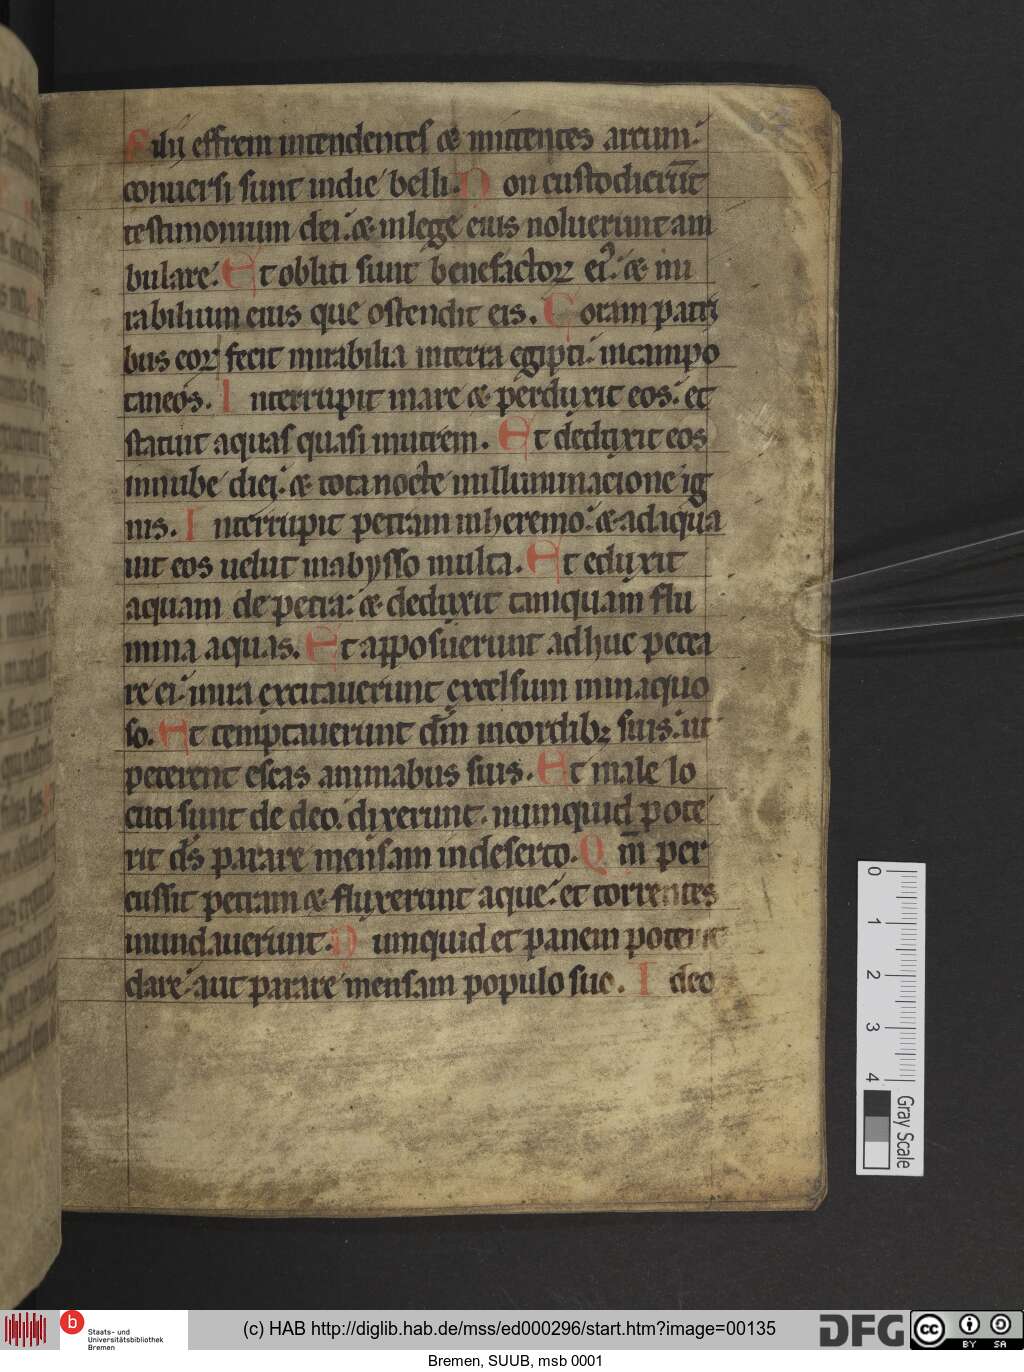 Filij effrem intendentes & mittentes arcum:
conuersi sunt indie belli. Non custodierūt
testimonium dei: & inlege eius noluerunt am
bulare. Et obliti sunt benefactoꝝ ei': & mi
rabilium eius que ostendit eis. Coram patri
bus eoꝝ fecit mirabilia interra egipti: incampo
taneos. Interrupit mare & perduxit eos: et
statuit aquas quasi inutrem. Et deduxit eos
innube diei: & tota nocte inilluminacione ig
nis. Interrupit petram inheremo: & adaqua
uit eos uelut inabysso multa. Et eduxit
aquam de petra: & deduxit tamquam flu
mina aquas. Et apposuerunt adhuc pecca
re ei: inira excitauerunt excelsum ininaquo
so. Et temptauerunt dm̄ incordibꝫ suis: ut
peterent escas animabus suis. Et male lo
cuti sunt de deo. dixerunt. numquid pote
rit ds̄ parare mensam indeserto. Qm̄ per
cussit petram & fluxerunt aque: et torrentes
inundauerunt. Numquid et panem poterit
dare: aut parare mensam populo suo. Ideo
0
1
2
3
4
Gray Scale
b
Staats- und
Universitätsbibliothek
Bremen
(c) HAB http://diglib.hab.de/mss/ed000296/start.htm?image=00135
DFG
cc
BY SA
Bremen, SUUB, msb 0001